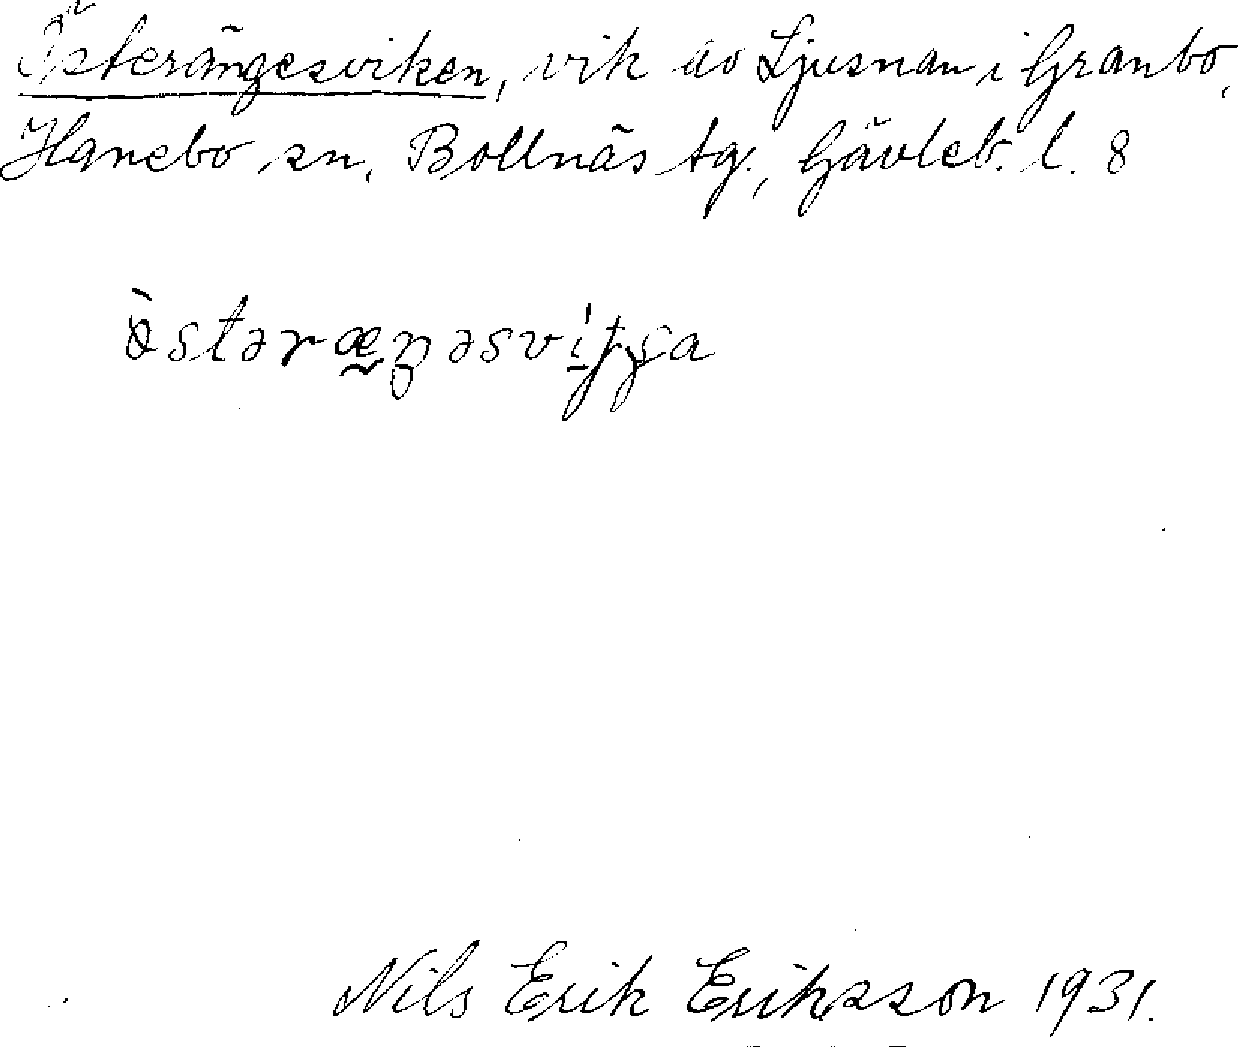 Österängesviken, vik av Ljusnan i Granbo,
Hanebo sn, Bollnäs tg., Gävleb. l. 8
Nils Erik Eriksson 1931.